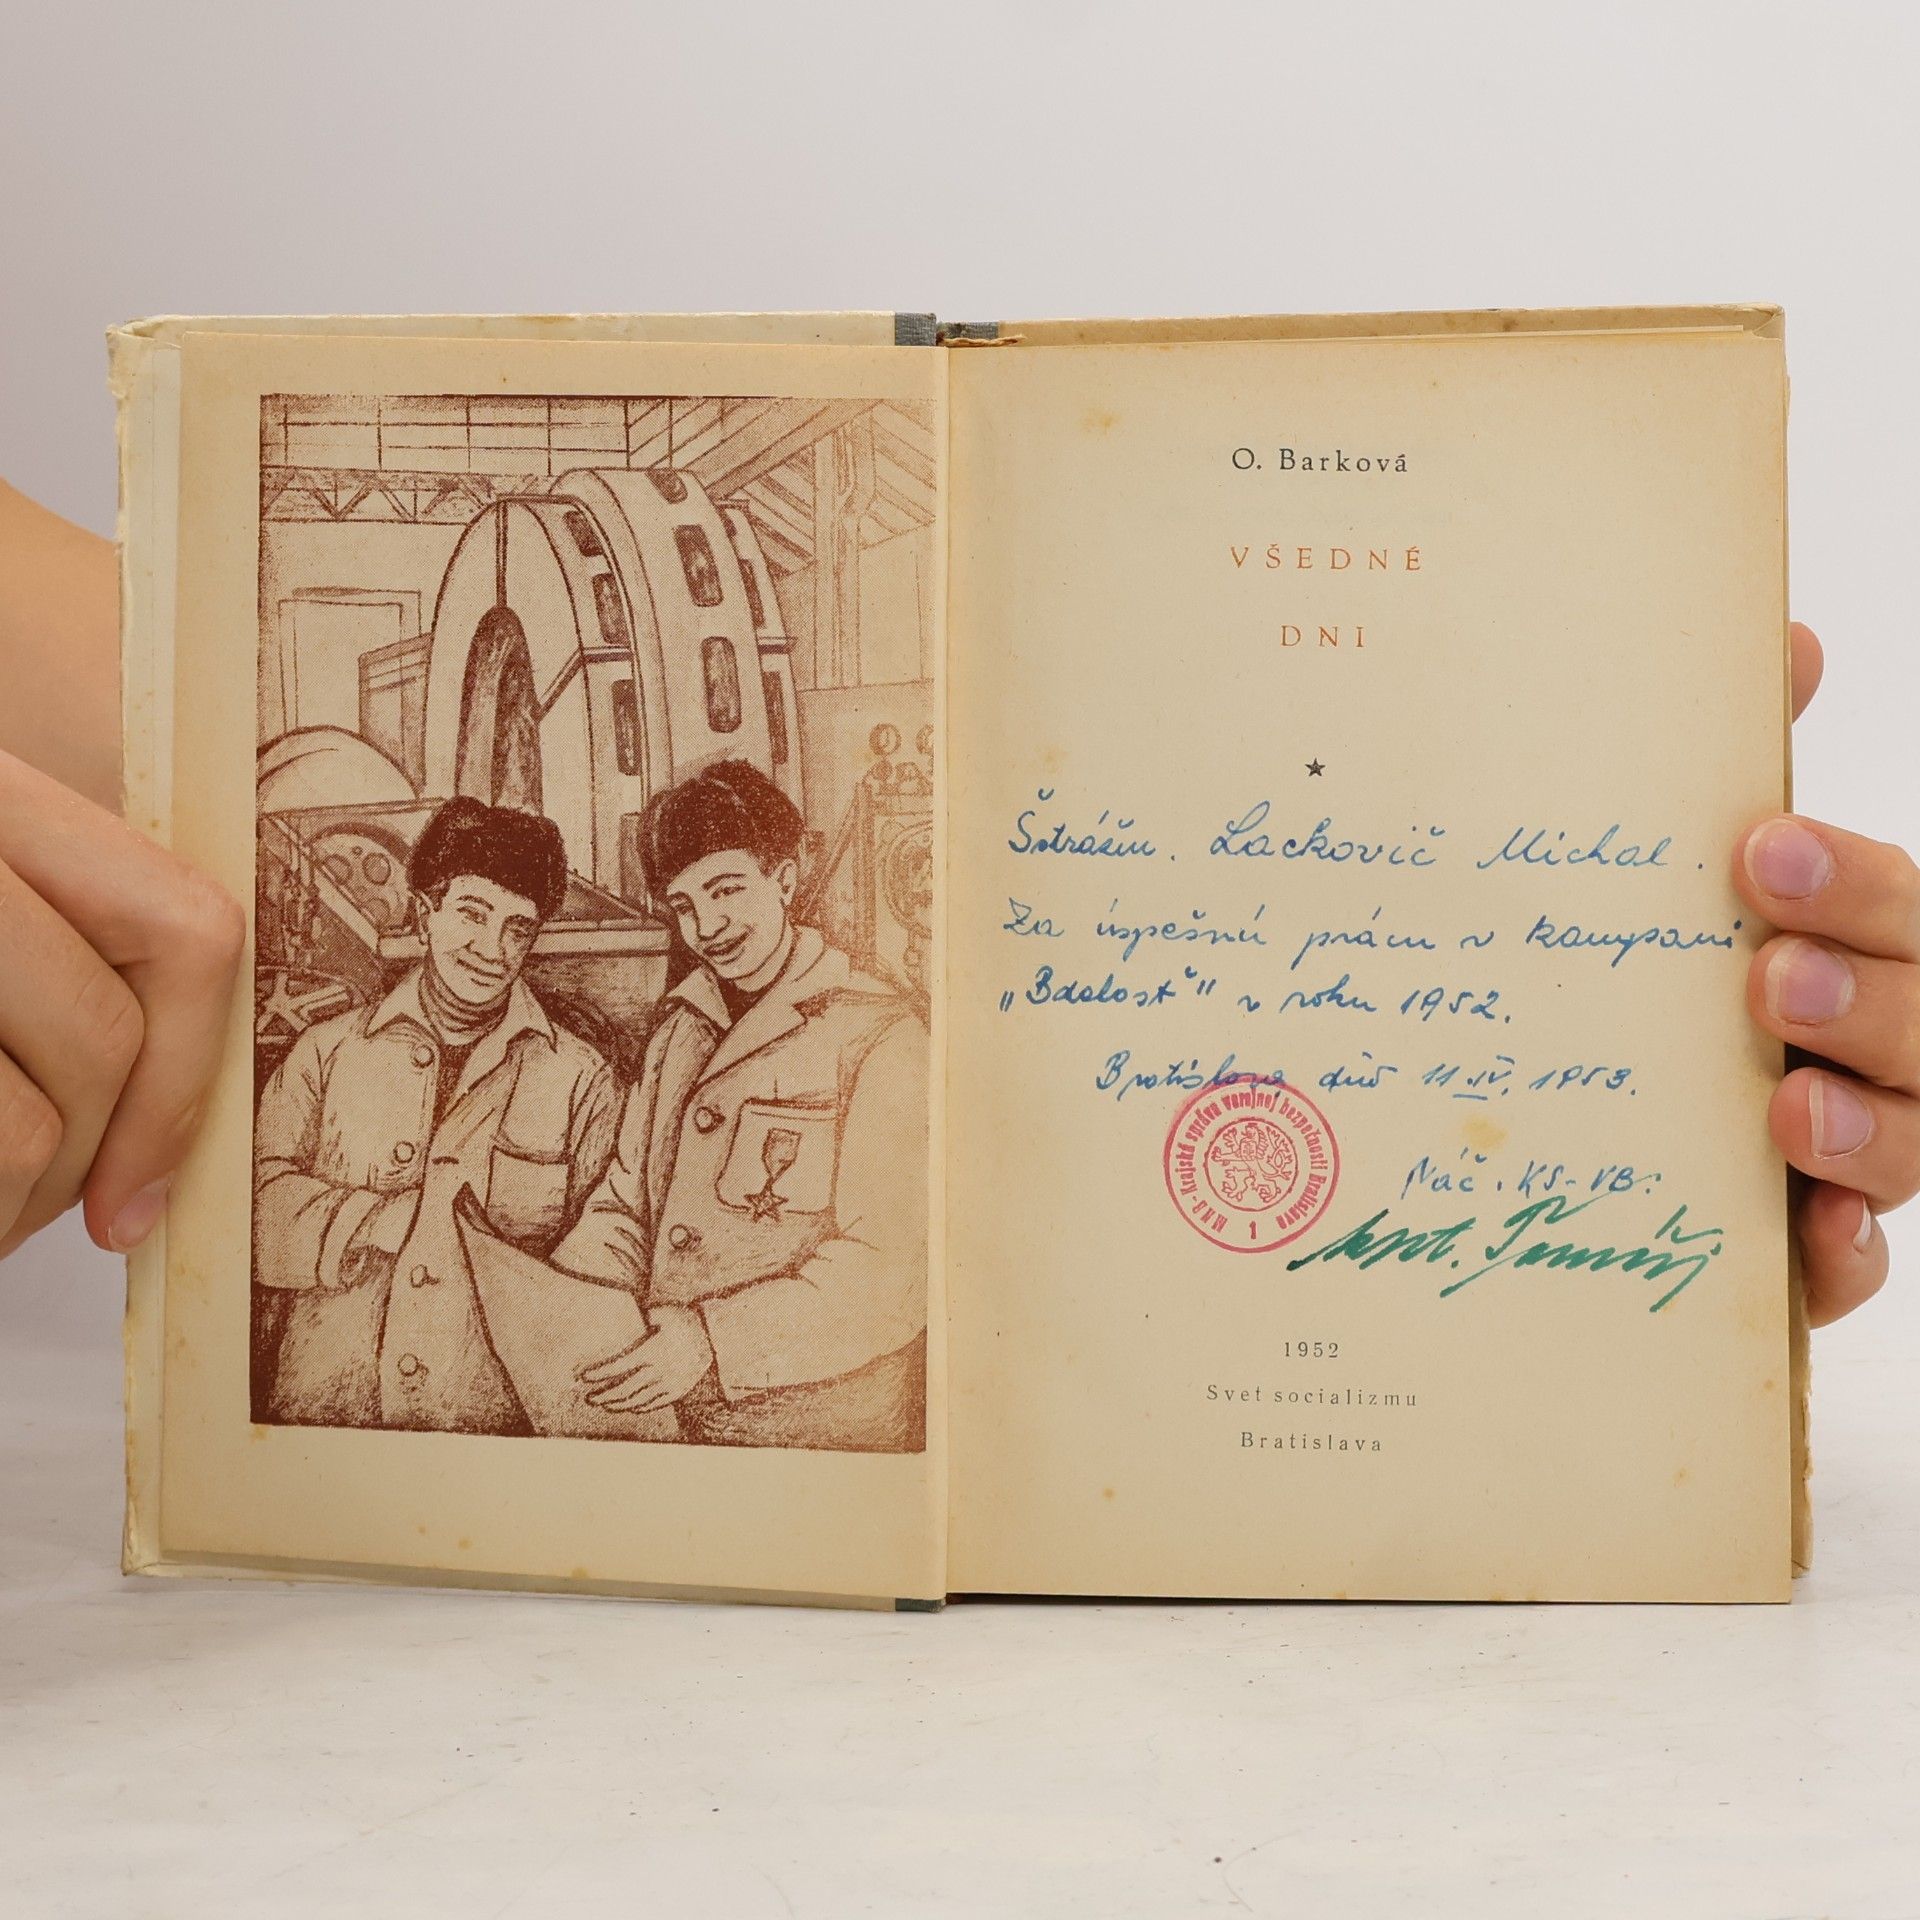 O. Barková
VŠEDNÉ
DNI
Štrášm. Lackovič Michal.
Za úspešnú prácu v kampani
„Bdelosť" v roku 1952.
Bratislava dňa 11.IV. 1953.
M.N.B - Krajská správa verejnej bezpečnosti Bratislava
1
Náč. KS-VB:
kpt.
1952
Svet socializmu
Bratislava